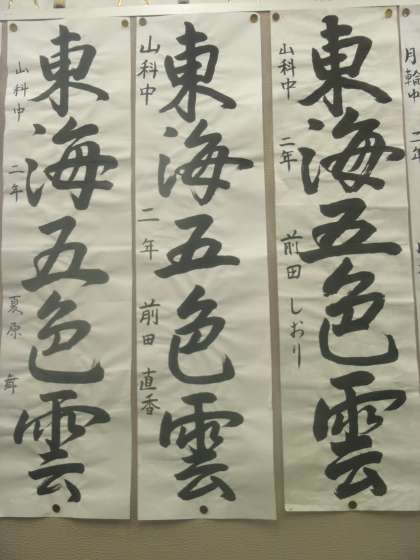 月輪中 二年
東海五色雲
山科中 二年 前田 しおり
東海五色雲
山科中 二年 前田 直香
東海五色雲
山科中 二年 夏原 舞